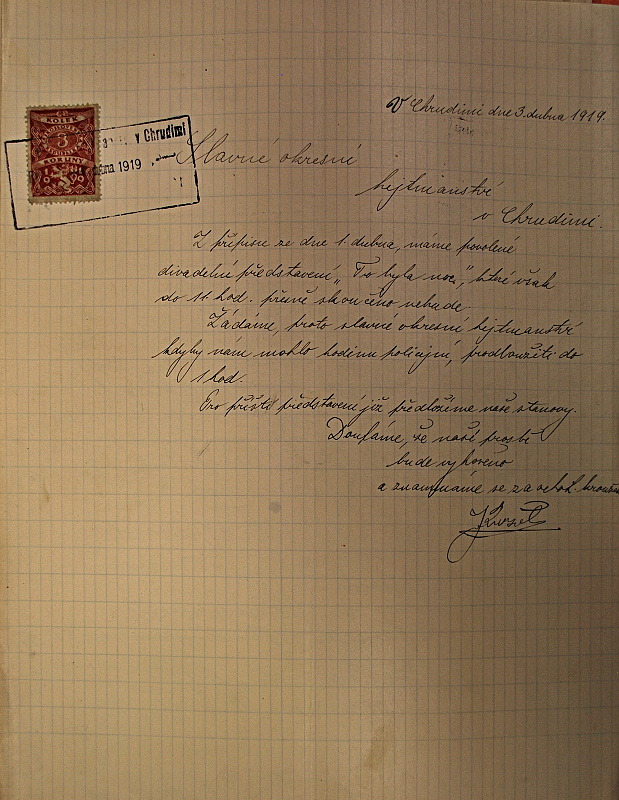 V Chrudimi dne 3. dubna 1919.
KOLEK
3
KORUNY
v Chrudimi
1919
Slavné okresní
hejtmanství
v Chrudimi.
Z přípisu ze dne 1. dubna, máme povolené
divadelní představení „To byla noc", které však
do 11 hod. přesně skončeno nebude.
Žádáme, proto slavné okresní hejtmanství
kdyby nám mohlo hodinu policejní, prodloužiti do
1 hod.
Pro příští představení již předložíme naše stanovy.
Doufáme, že naší prosbě
bude vyhověno
a znamenáme se za ochot.